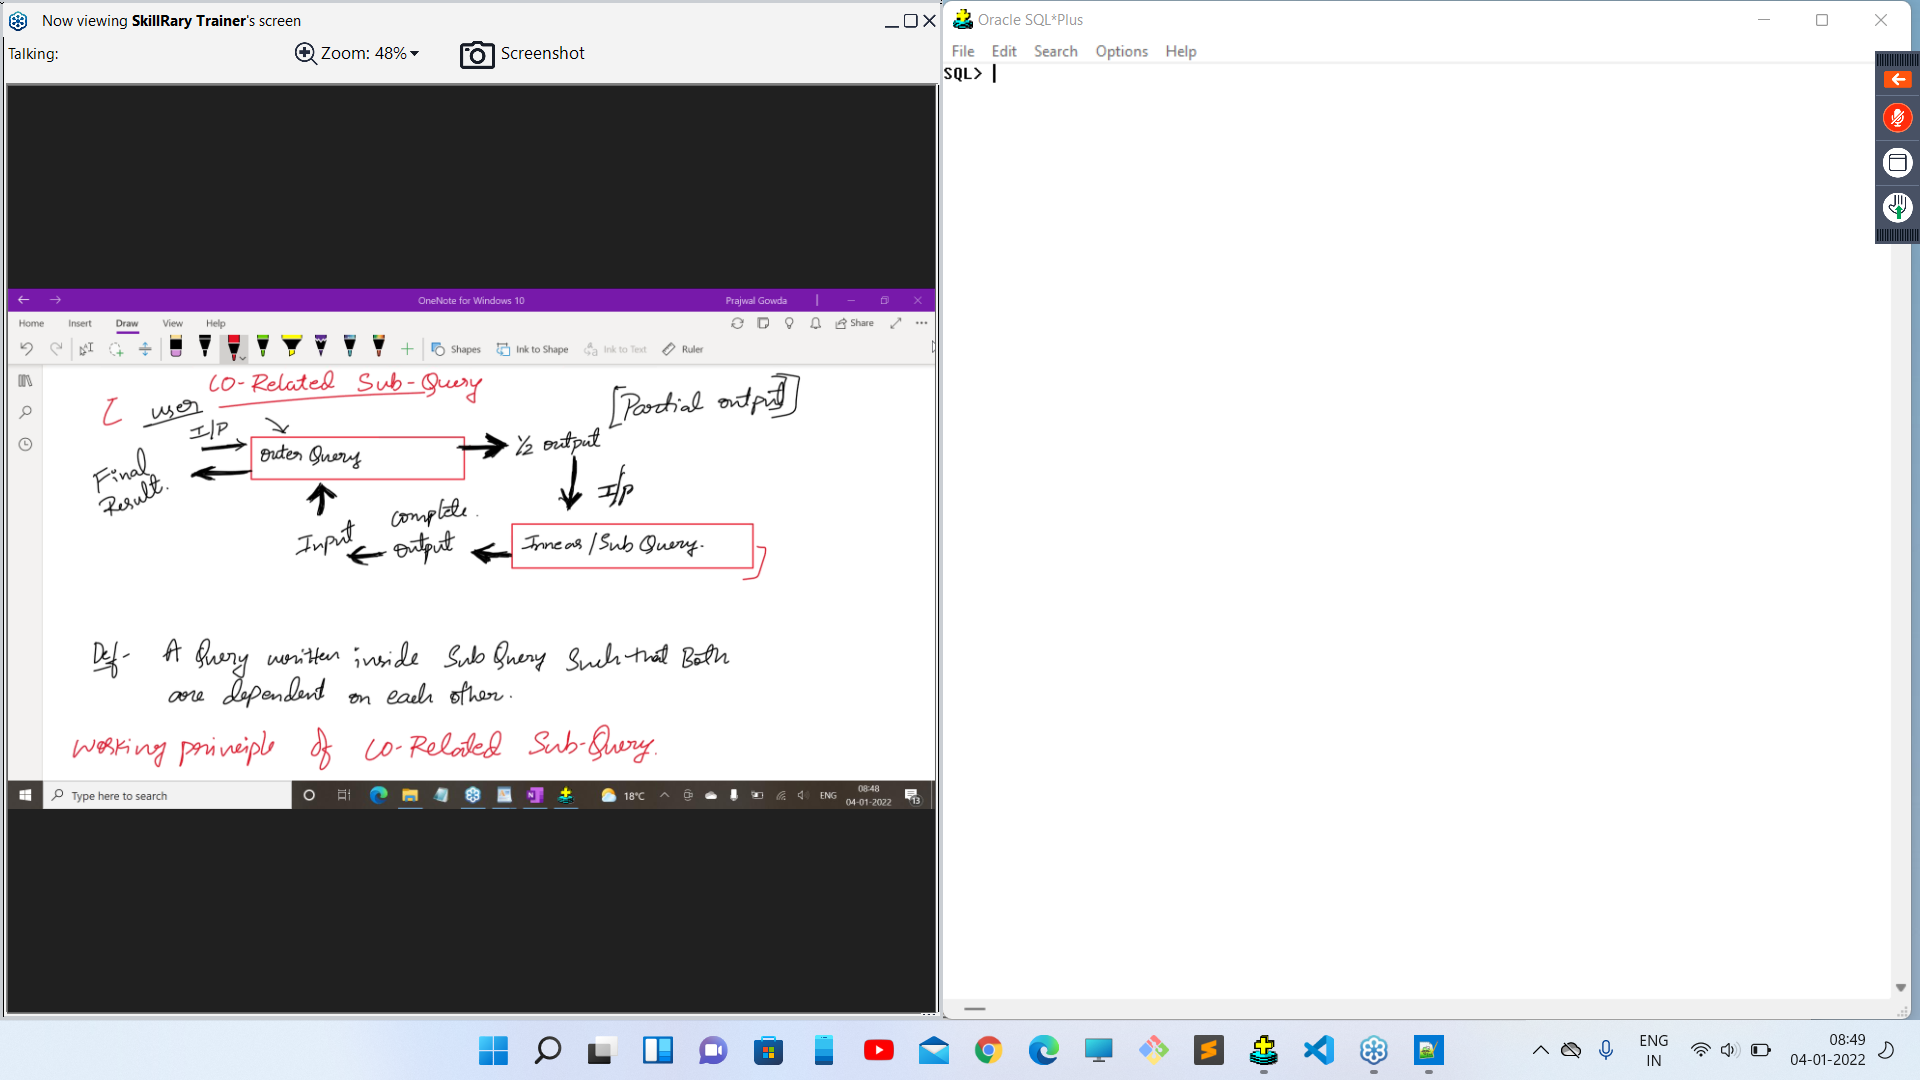 Now viewing SkillRary Trainer's screen
Talking:
Zoom: 48%
Screenshot
OneNote for Windows 10
Prajwal Gowda
Home Insert Draw View Help
Share
Shapes Ink to Shape Ink to Text Ruler
CO-Related Sub-Query
[Partial output]
user
I/P
outer Query
1/2 output
Final Result.
I/P
complete output
Input
Inner/Sub Query.
Def- A Query written inside Sub Query Such that Both
are dependent on each other.
Working principle of CO-Related Sub-Query.
Type here to search
18°C
ENG
08:48
04-01-2022
13
Oracle SQL*Plus
File Edit Search Options Help
SQL>
ENG
IN
08:49
04-01-2022